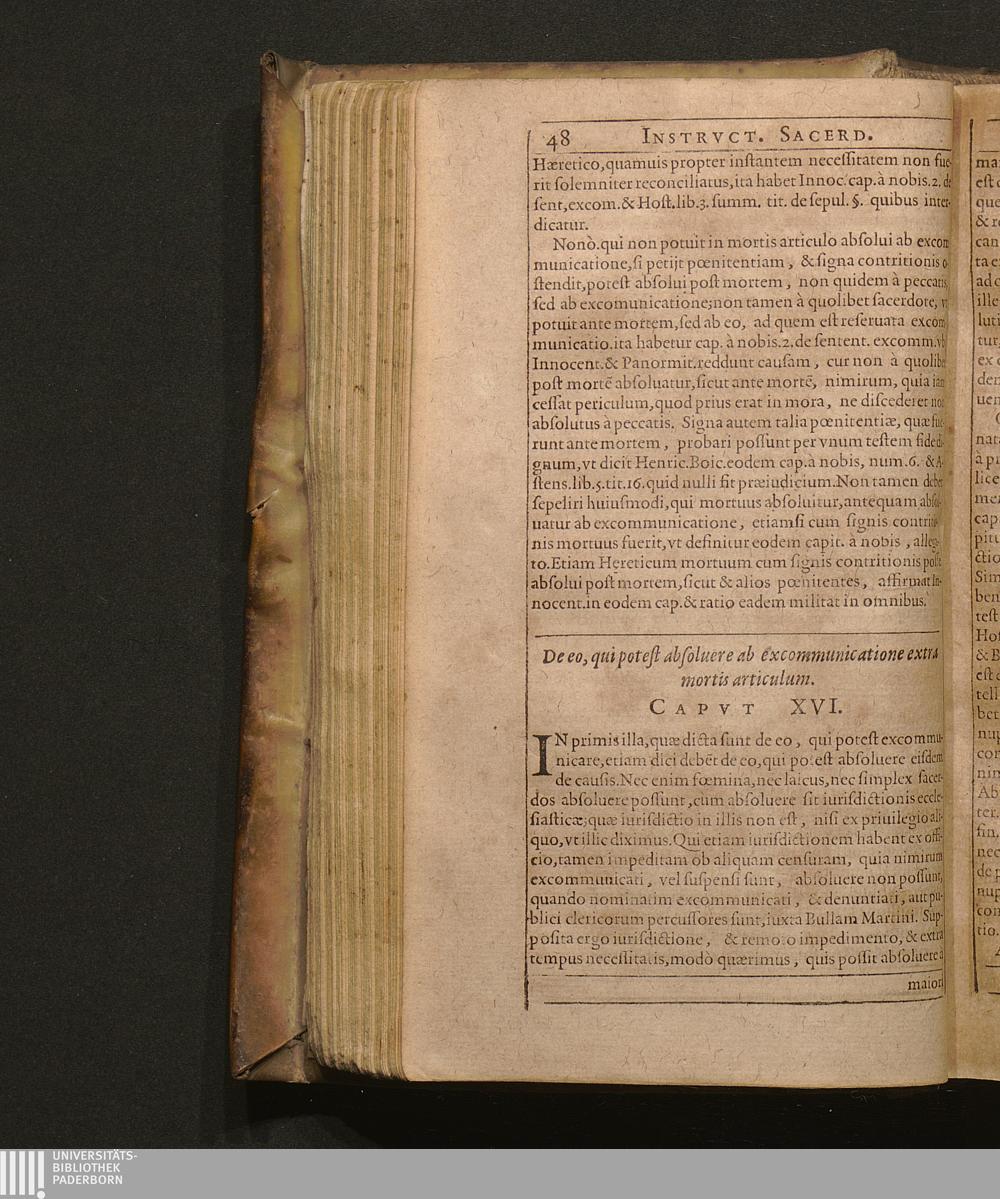 48 INSTRVCT. SACERD.
Hæretico,quamuis propter inſtantem neceſſitatem non fue-
rit ſolemniter reconciliatus,ita habet Innoc. cap.à nobis.2. de
ſent,excom.& Hoſt.lib.3. ſumm. tit. de ſepul. §. quibus inter-
dicatur.
Nonò.qui non potuit in mortis articulo abſolui ab excom
municatione,ſi petijt pœnitentiam, & ſigna contritionis o-
ſtendit,poteſt abſolui poſt mortem, non quidem à peccatis,
ſed ab excomunicatione;non tamen à quolibet ſacerdote, vt
potuit ante mortem,ſed ab eo, ad quem eſt reſeruata excom
municatio.ita habetur cap. à nobis.2.de ſentent. excomm.vbi
Innocent.& Panormit.reddunt cauſam, cur non à quolibet
poſt mortẽ abſoluatur,ſicut ante mortẽ, nimirum, quia iam
ceſſat periculum,quod prius erat in mora, ne diſcederet non
abſolutus à peccatis. Signa autem talia pœnitentiæ, quæ fue-
runt ante mortem, probari poſſunt per vnum teſtem fide di-
gnum,vt dicit Henric.Boic.eodem cap.a nobis, num.6. & A-
ſtens.lib.5.tit.16.quid nulli fit præiudicium.Non tamen debet
ſepeliri huiuſmodi,qui mortuus abſoluitur,antequam abſol-
uatur ab excommunicatione, etiamſi cum ſignis contritio-
nis mortuus fuerit,vt definitur eodem capit. à nobis, allega-
to.Etiam Hereticum mortuum cum ſignis contritionis poſſe
abſolui poſt mortem,ſicut & alios pœnitentes, affirmat In-
nocent.in eodem cap.& ratio eadem militat in omnibus.
De eo, qui poteſt abſoluere ab excommunicatione extra
mortis articulum.
CAPVT XVI.
IN primis illa,quæ dicta ſunt de eo, qui poteſt excommu-
nicare,etiam dici debẽt de eo,qui poteſt abſoluere eiſdem
de cauſis.Nec enim fœmina,nec laicus,nec ſimplex ſacer-
dos abſoluere poſſunt,cum abſoluere ſit iuriſdictionis eccle-
ſiaſticæ;quæ iuriſdictio in illis non eſt, niſi ex priuilegio ali-
quo,vt illic diximus.Qui etiam iuriſdictionem habent ex offi-
cio,tamen impeditam ob aliquam cenſuram, quia nimirum
excommunicati, vel ſuſpenſi ſunt, abſoluere non poſſunt,
quando nominatim excommunicati, & denuntiati, aut pu-
blici clericorum percuſſores ſunt,iuxta Bullam Martini. Sup-
poſita ergo iuriſdictione, & remoto impedimento, & extra
tempus neceſſitatis,modò quærimus, quis poſſit abſoluere à
maiori
UNIVERSITÄTS-
BIBLIOTHEK
PADERBORN